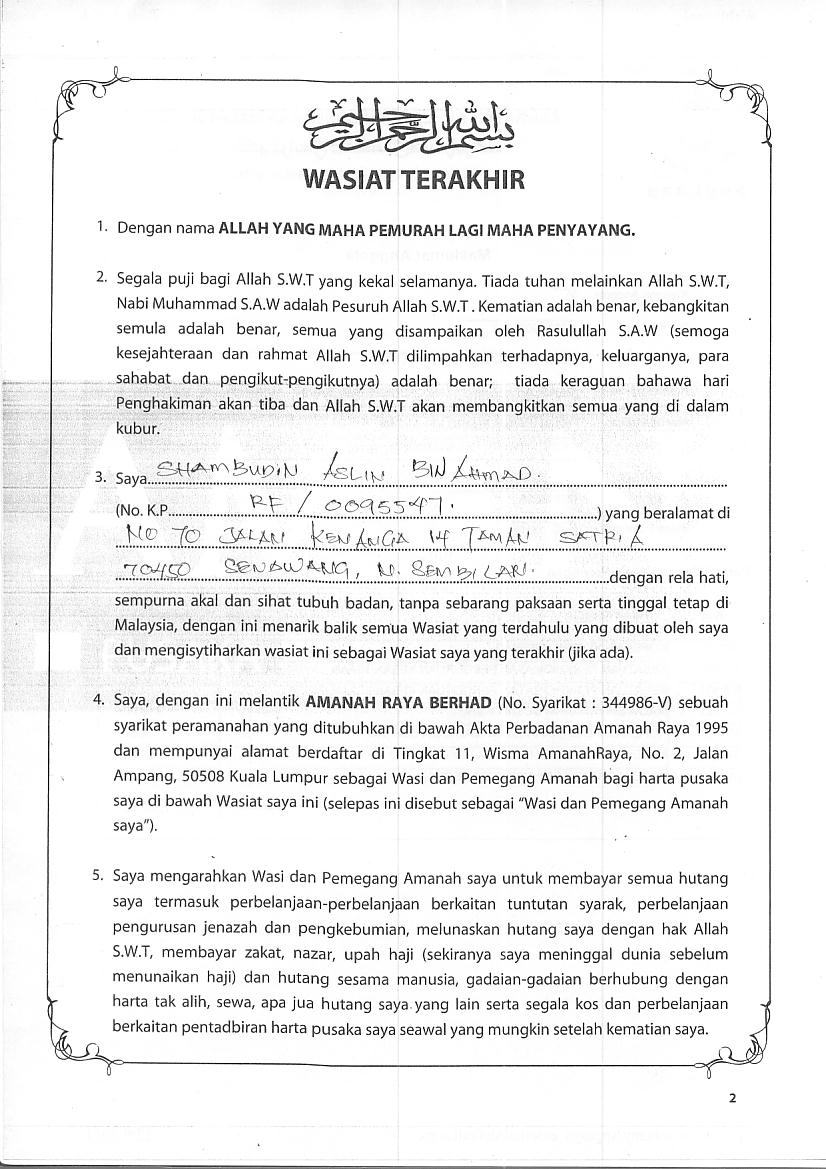 بسم الله الرحمن الرحيم
WASIAT TERAKHIR
1. Dengan nama ALLAH YANG MAHA PEMURAH LAGI MAHA PENYAYANG.
2. Segala puji bagi Allah S.W.T yang kekal selamanya. Tiada tuhan melainkan Allah S.W.T,
Nabi Muhammad S.A.W adalah Pesuruh Allah S.W.T . Kematian adalah benar, kebangkitan
semula adalah benar, semua yang disampaikan oleh Rasulullah S.A.W (semoga
kesejahteraan dan rahmat Allah S.W.T dilimpahkan terhadapnya, keluarganya, para
sahabat dan pengikut-pengikutnya) adalah benar; tiada keraguan bahawa hari
Penghakiman akan tiba dan Allah S.W.T akan membangkitkan semua yang di dalam
kubur.
3. Saya SHAMBUDIN ASLIN BIN AHMAD.
(No. K.P. RF / 0095547. ) yang beralamat di
NO 70 JALAN KENANGA 14 TAMAN SATRIA
70450 SENAWANG, N. SEMBILAN. dengan rela hati,
sempurna akal dan sihat tubuh badan, tanpa sebarang paksaan serta tinggal tetap di
Malaysia, dengan ini menarik balik semua Wasiat yang terdahulu yang dibuat oleh saya
dan mengisytiharkan wasiat ini sebagai Wasiat saya yang terakhir (jika ada).
4. Saya, dengan ini melantik AMANAH RAYA BERHAD (No. Syarikat : 344986-V) sebuah
syarikat peramanahan yang ditubuhkan di bawah Akta Perbadanan Amanah Raya 1995
dan mempunyai alamat berdaftar di Tingkat 11, Wisma AmanahRaya, No. 2, Jalan
Ampang, 50508 Kuala Lumpur sebagai Wasi dan Pemegang Amanah bagi harta pusaka
saya di bawah Wasiat saya ini (selepas ini disebut sebagai “Wasi dan Pemegang Amanah
saya”).
5. Saya mengarahkan Wasi dan Pemegang Amanah saya untuk membayar semua hutang
saya termasuk perbelanjaan-perbelanjaan berkaitan tuntutan syarak, perbelanjaan
pengurusan jenazah dan pengkebumian, melunaskan hutang saya dengan hak Allah
S.W.T, membayar zakat, nazar, upah haji (sekiranya saya meninggal dunia sebelum
menunaikan haji) dan hutang sesama manusia, gadaian-gadaian berhubung dengan
harta tak alih, sewa, apa jua hutang saya yang lain serta segala kos dan perbelanjaan
berkaitan pentadbiran harta pusaka saya seawal yang mungkin setelah kematian saya.
2